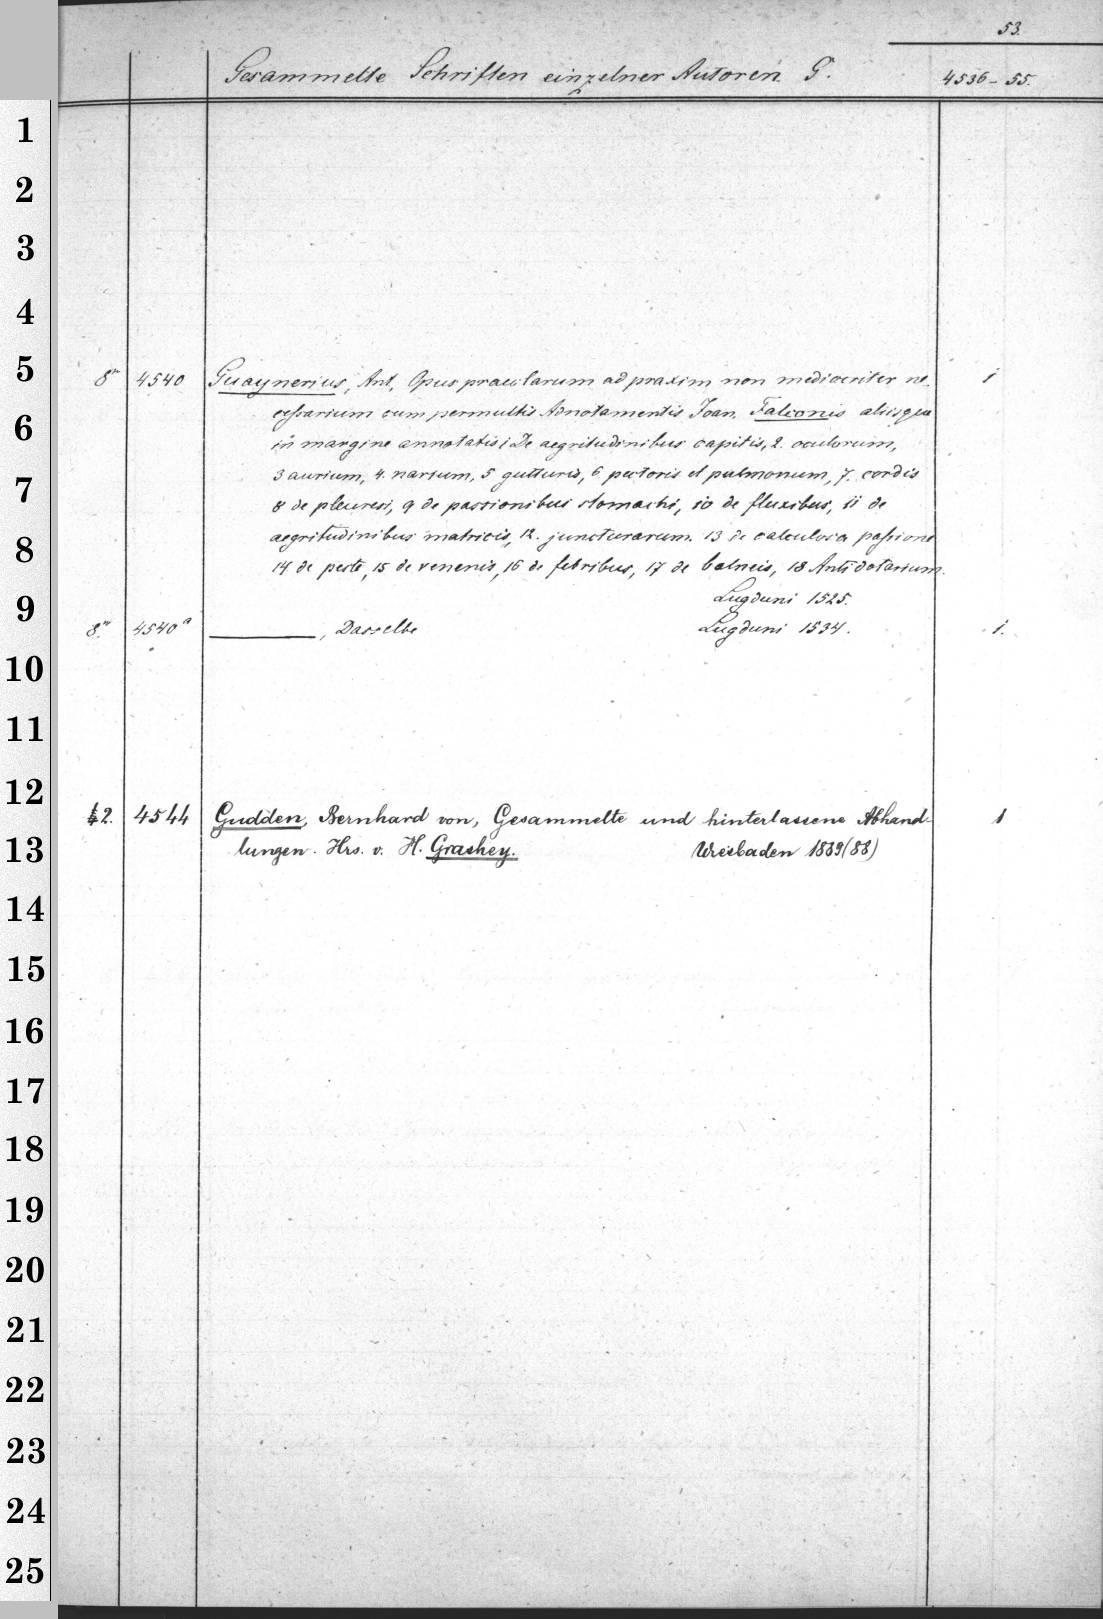 53.
Gesammelte Schriften einzelner Autoren G.
4536-55.
8° 4540 Guaynerius, Ant. Opus praeclarum ad praxim non mediocriter ne- 1
cessarium cum permultis Adnotamentis Joan. Falconis aliisque
in margine annotatis 1 De aegritudinibus capitis, 2. oculorum,
3 aurium, 4. narium, 5 gutturis, 6 pectoris et pulmonum, 7. cordis
8 de pleuresi, 9 de passionibus stomachi, 10 de fluxibus, 11 de
aegritudinibus matricis, 12. juncturarum. 13 de calculosa passione
14 de peste, 15 de venenis, 16 de febribus, 17 de balneis, 18 Antidotarium.
Lugduni 1525.
8° 4540a ———, Dasselbe Lugduni 1534. 1.
1
2
3
4
5
6
7
8
9
10
11
12
13
14
15
16
17
18
19
20
21
22
23
24
25
2. 4544 Gudden, Bernhard von, Gesammelte und hinterlassene Abhand- 1
lungen. Hrs. v. H. Grashey. Wiesbaden 1889(88)